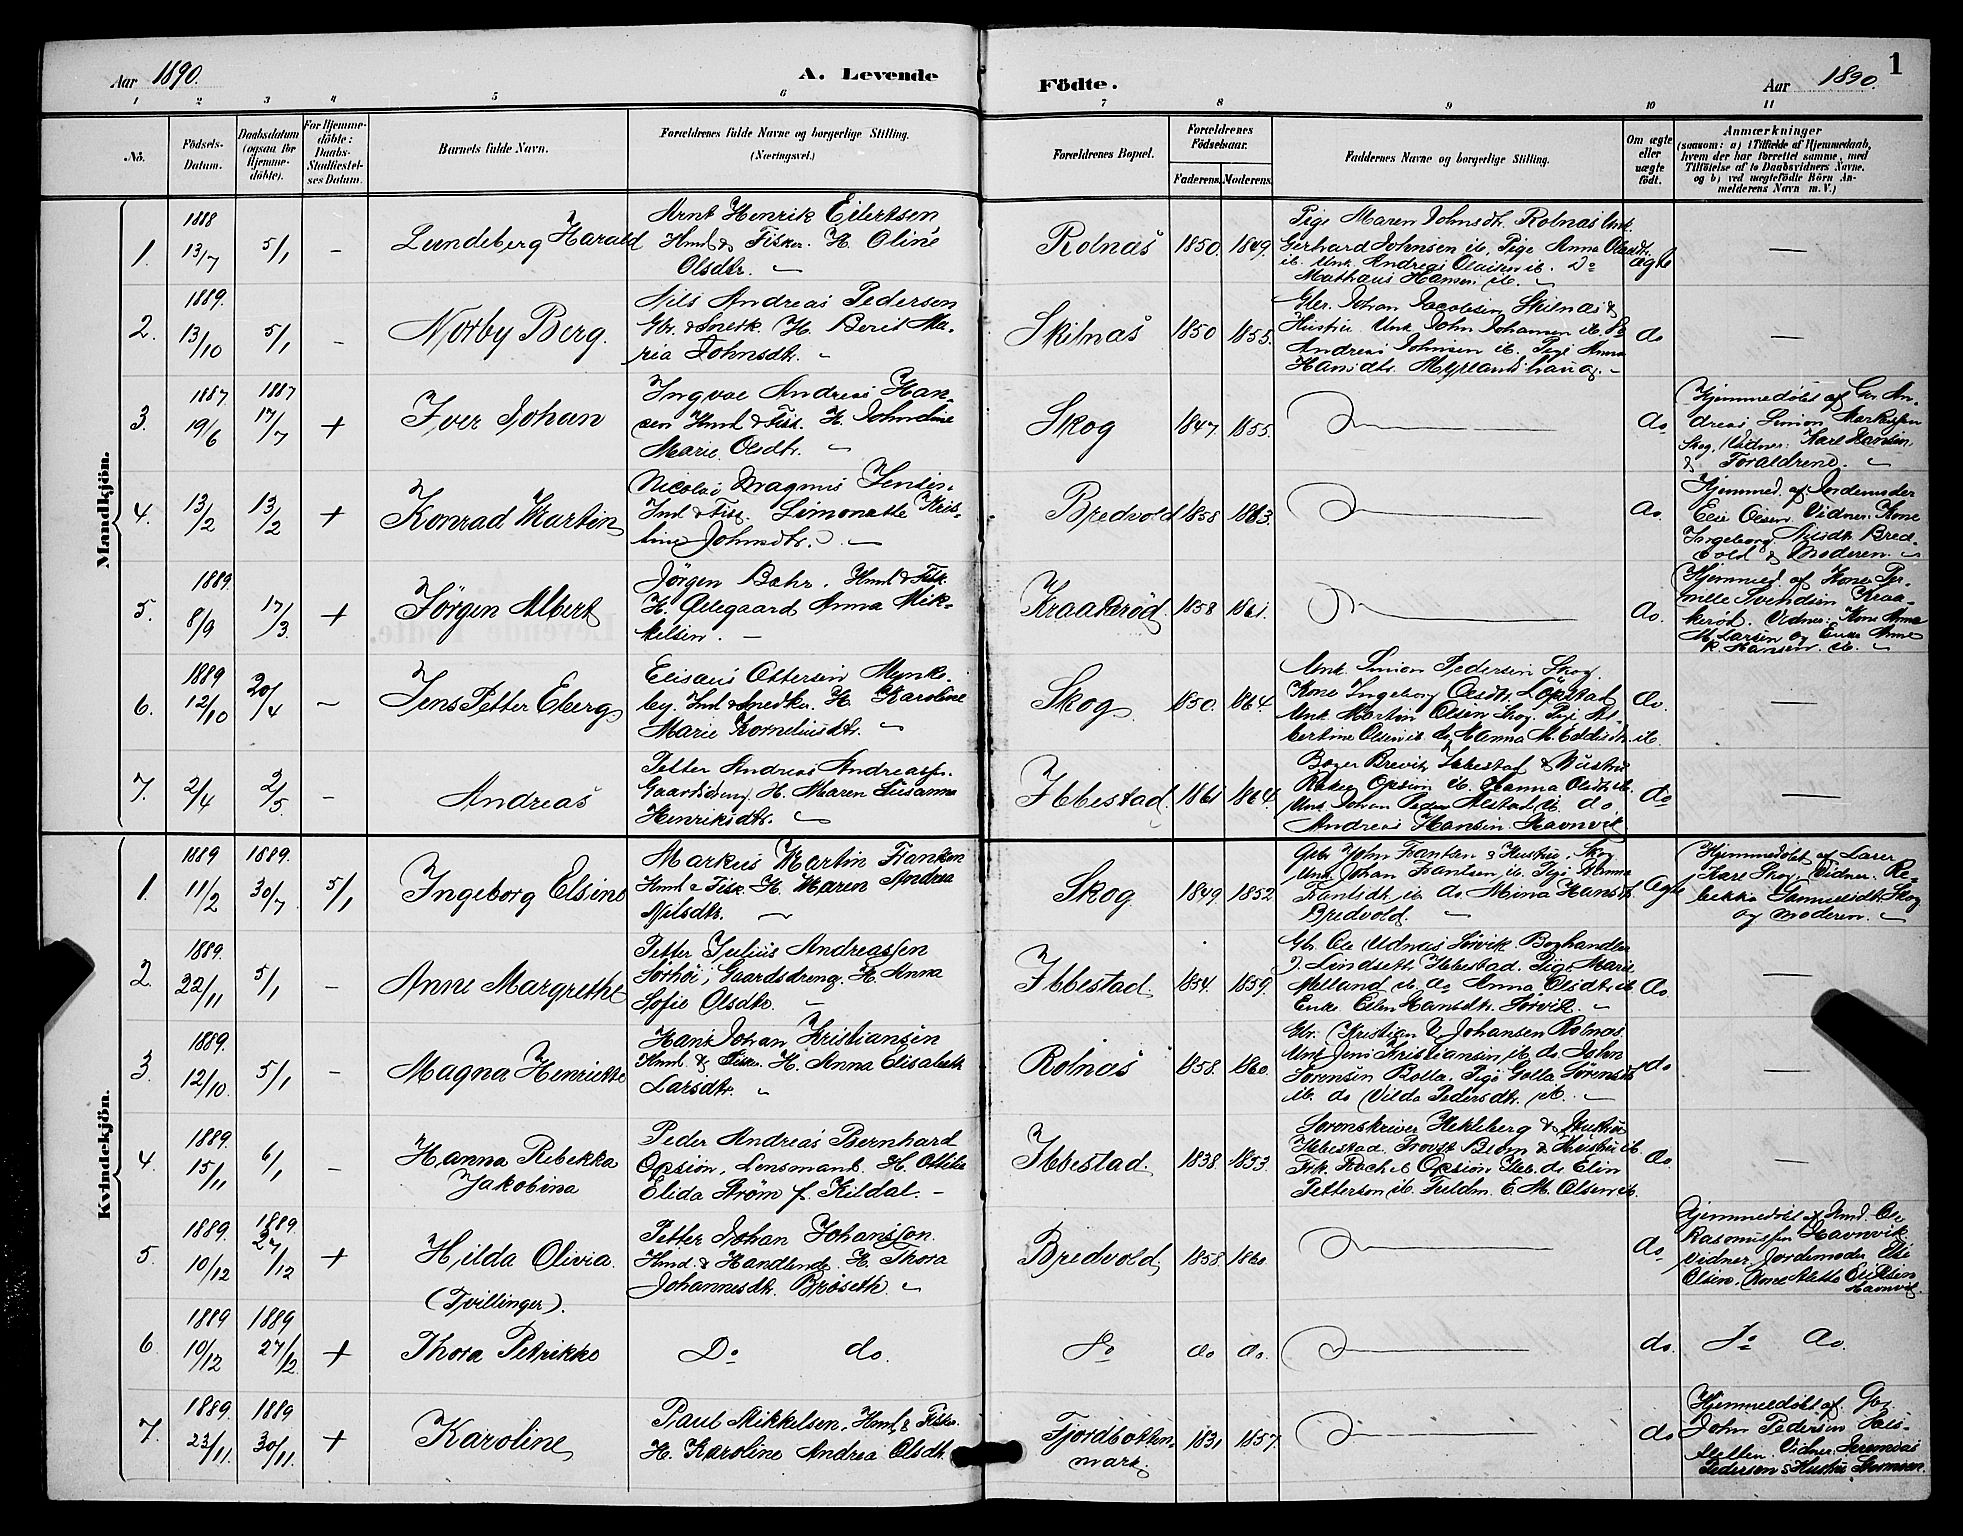 1
Aar 1890.
A. Levende
Födte.
Aar 1890.
1 2 3 4 5 6 7 8 9 10 11
Nö.
Födsels-Datum.
Daabsdatum (ogsaa for Hjemme-döbte).
For Hjemme-döbte: Daabs-Stadfæstel-ses Datum.
Barnets fulde Navn.
Forældrenes fulde Navne og borgerlige Stilling. (Næringsvei.)
Forældrenes Bopæl.
Forældrenes Födselsaar.
Faderens. Moderens.
Faddernes Navne og borgerlige Stilling.
Om ægte eller uægte födt.
Anmærkninger
(saasom: a) i Tilfælde af Hjemmedaab,
hvem der har forrettet samme, med
Tilföielse af to Daabsvidners Navne.
og b) ved uægtefödte Börn An-
melderens Navn m. V.)
Mandkjön.
1. 1888 13/7 5/1 –
Lundeberg Harald
Arnt Henrik Eilertsen
Huml & Fisker. H. Oline
Olsdtr.
Rolnäs 1850. 1849.
Pige Maren Johnsdtr. Rolnäs Unk.
Gerhard Johnsen ib. Pige Anna Olsdtr.
ib. Unk. Andreas Olaisen ib. Do
Mathæus Hansen ib.
ægte —
2. 1889. 13/10 5/1 –
Norby Berg.
Nils Andreas Pedersen
Gbr. & Snedk. H. Berit Ma-
ria Johnsdtr.
Skilnäs 1850 1855.
Gbr. Johan Jacobsen Skilnäs &
Hustru. Unk John Johansen ib. Do
Andreas Johnsen ib. Pige Anna
Hansdtr. Myrlandshaug.
do —
3. 1887. 19/6 1887 17/7 +
Iver Johan
Ingvar Andreas Han-
sen Huml & Fisk. H. Johndine
Marie Olsdtr.
Skog 1847. 1855.
do.
Hjemmedöbt af Gr. An-
dreas Simon Markussen
Skog. Vidner: Karl Hansen,
& Forældrene.
4. 13/2 13/2 +
Konrad Martin
Nicolai Magnus Jensen.
Ind & Fisk Simonette Kris-
tine Johnsdtr.
Bredvold 1858 1863.
do.
Hjemmed. af Jordemoder
Else Olsen. Vidner: Kone
Ingeborg Nilsdtr. Bred-
vold & Moderen.
5. 1889. 8/9 17/3. +
Jörgen Albert
Jörgen Bahr. Huml & Fisk.
H. Odegaard Anna Mik-
kelsen.
Kraakeröd. 1858 1861.
do.
Hjemmed. af Kone Per-
nille Svendsen Kraa-
keröd. Vidner: Kone Anna
M. Larsen og Enke Anne
K. Hansen ib.
6. 1889 12/10 20/4 –
Jens Petter Eberg
Elisæus Ottersen Mynke-
by. Ind & Snedker. H. Karoline
Marie Korneliusdtr.
Skog 1850. 1864.
Unk. Simon Pedersen Skog.
Kone Ingeborg Olsdtr. Löpstad
Unk. Martin Olsen Skog. Pige Al-
bertine Olsen ib. do. Hanna M. Eddisdtr. ib.
do. —
7. 2/4 2/5 –
Andreas
Petter Andreas Andreass.
Gaardsdreng. H. Maren Susanna
Henriksdtr.
Ibbestad. 1861 1864.
Brevik Ibbestad & Hustru
Opsion ib. Hanna Olsdtr. ib.
Unk. Johan Peder Alstad ib. do
Andreas Hansen Havnvik
do —
Kvindekjön.
1. 1889 11/2 1889. 30/7 5/1
Ingeborg Elsine
Markus Martin Frantzen
Huml & Fisk. H. Maren Andrea
Nilsdtr.
Skog 1849 1852
Gbr. John Frantzen & Hustru, Skog
Unk. Johan Frantsen ib. Pige Anna
Frantsdtr. ib. do. Mina Hansdtr.
Bredvold.
Ægte
Hjemmedöbt af Lærer
Karl Skog. Vidner. Re-
bekka Samuelsdtr. Skog
og Moderen.
2. 1889. 22/11 5/1 –
Anne Margrethe
Petter Julius Andreassen
Sörhöi, Gaardsdreng. H. Anna
Sofie Olsdtr.
Ibbestad. 1854. 1859.
Gb. Ole Udnäs Sörvik. Boghandler
J. Lindseth Ibbestad. Pige Marie
Melland ib. do Anna Olsdtr. ib.
Enke Elen Hansdtr. Sörvik.
do. —
3. 1889. 12/10. 5/1 –
Magna Henriette
Hans Johan Kristiansen
Huml & Fisker. H. Anna Elisabeth
Larsdtr.
Rolnäs 1858. 1860.
Gbr. Kristian U Johansen Rolnäs
Unk Jens Kristiansen ib. do. John
Sörensen Bolla. Pige Golla Sörensdtr
ib. do Vilda Pedersdtr. ib.
do —
4. 1889. 15/11 6/1 –
Hanna Rebekka
Jakobina
Peder Andreas Bernhard
Opsion, Lensmand. H. Ottilie
Elida Ström f. Kildal. –
Ibbestad. 1838. 1853.
Sorenskriver Hekleberg & Hustru
Ibbestad. Provst Blom & Hustru ib.
Frk. Rachel Opsion Ibb. do. Elin
Petterson ib. Fuldm. E. M. Olsen ib.
do. —
5. 1889. 10/12 1889. 27/12 +
Hilda Olivia.
(Tvillinger).
Petter Johan Johanssen.
Hmd. & Handlende H. Thora
Johannesdtr. Bröseth.
Bredvold 1858. 1860.
do
Hjemmedöbt af Hmd. Ole
Rasmussen Havnvik.
Vidner Jordemoder Else
Olsen. Anne Mette Eriksen
Havnvik.
6. 1889 10/12 1889 27/12. +
Thora Petrikke
Do do.
Do do do.
do. Do do.
7. 1889. 23/11. 1889 30/11. +
Karoline
Paul Mikkelsen, Huml & Fisker
H. Karoline Andrea Olsdtr.
Fjordbotten-
mark. 1831 1857.
do
Hjemmedöbt af. Gbr
John Pedersen Sæt-
Vidner. Jeremias
Pedersen & Hustru